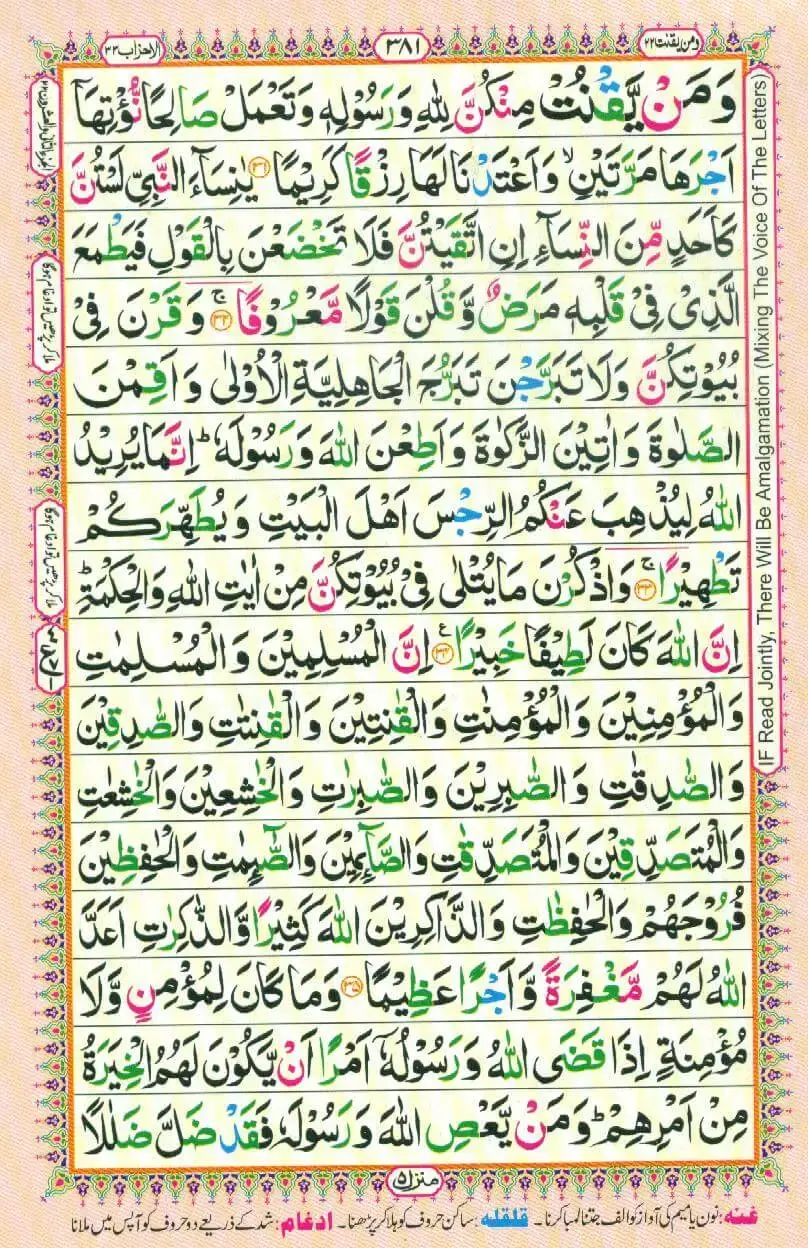 ومن یقنت ۲۲
۳۸۱
الاحزاب ۳۳
وَمَنْ يَّقْنُتْ مِنْكُنَّ لِلّٰهِ وَرَسُوْلِهٖ وَتَعْمَلْ صَالِحًا نُّؤْتِهَاۤ
اَجْرَهَا مَرَّتَيْنِ ۙ وَاَعْتَدْنَا لَهَا رِزْقًا كَرِيْمًا ﴿۳۱﴾ يٰنِسَآءَ النَّبِيِّ لَسْتُنَّ
كَاَحَدٍ مِّنَ النِّسَآءِ اِنِ اتَّقَيْتُنَّ فَلَا تَخْضَعْنَ بِالْقَوْلِ فَيَطْمَعَ
الَّذِيْ فِيْ قَلْبِهٖ مَرَضٌ وَّقُلْنَ قَوْلًا مَّعْرُوْفًا ۚ ﴿۳۲﴾ وَقَرْنَ فِيْ
بُيُوْتِكُنَّ وَلَا تَبَرَّجْنَ تَبَرُّجَ الْجَاهِلِيَّةِ الْاُوْلٰى وَاَقِمْنَ
الصَّلٰوةَ وَاٰتِيْنَ الزَّكٰوةَ وَاَطِعْنَ اللّٰهَ وَرَسُوْلَهٗ ؕ اِنَّمَا يُرِيْدُ
اللّٰهُ لِيُذْهِبَ عَنْكُمُ الرِّجْسَ اَهْلَ الْبَيْتِ وَيُطَهِّرَكُمْ
تَطْهِيْرًا ۚ ﴿۳۳﴾ وَاذْكُرْنَ مَا يُتْلٰى فِيْ بُيُوْتِكُنَّ مِنْ اٰيٰتِ اللّٰهِ وَالْحِكْمَةِ ؕ
اِنَّ اللّٰهَ كَانَ لَطِيْفًا خَبِيْرًا ﴿۳۴﴾ ع اِنَّ الْمُسْلِمِيْنَ وَالْمُسْلِمٰتِ
وَالْمُؤْمِنِيْنَ وَالْمُؤْمِنٰتِ وَالْقٰنِتِيْنَ وَالْقٰنِتٰتِ وَالصّٰدِقِيْنَ
وَالصّٰدِقٰتِ وَالصّٰبِرِيْنَ وَالصّٰبِرٰتِ وَالْخٰشِعِيْنَ وَالْخٰشِعٰتِ
وَالْمُتَصَدِّقِيْنَ وَالْمُتَصَدِّقٰتِ وَالصَّآئِمِيْنَ وَالصّٰٓئِمٰتِ وَالْحٰفِظِيْنَ
فُرُوْجَهُمْ وَالْحٰفِظٰتِ وَالذَّاكِرِيْنَ اللّٰهَ كَثِيْرًا وَّالذّٰكِرٰتِ اَعَدَّ
اللّٰهُ لَهُمْ مَّغْفِرَةً وَّاَجْرًا عَظِيْمًا ﴿۳۵﴾ وَمَا كَانَ لِمُؤْمِنٍ وَّلَا
مُؤْمِنَةٍ اِذَا قَضَى اللّٰهُ وَرَسُوْلُهٗۤ اَمْرًا اَنْ يَّكُوْنَ لَهُمُ الْخِيَرَةُ
مِنْ اَمْرِهِمْ ؕ وَمَنْ يَّعْصِ اللّٰهَ وَرَسُوْلَهٗ فَقَدْ ضَلَّ ضَلٰلًا
IF Read Jointly, There Will Be Amalgamation (Mixing The Voice Of The Letters)
منزل ۵
غنه: نون یا میم کی آواز کو الف جتنا لمبا کرنا ۔ قلقله: ساکن حروف کو ہلا کر پڑھنا ۔ ادغام: شد کے ذریعے دو حروف کو آپس میں ملانا